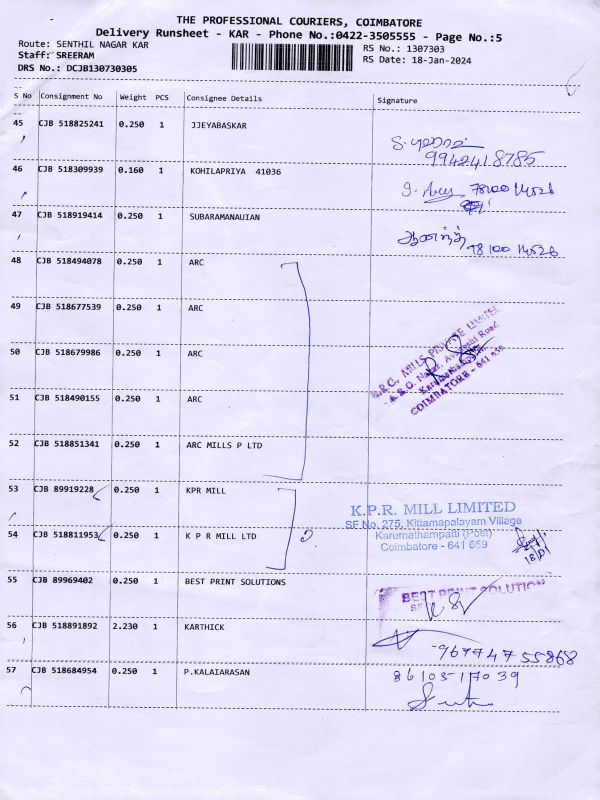 THE PROFESSIONAL COURIERS, COIMBATORE
Delivery Runsheet - KAR - Phone No.:0422-3505555 - Page No.:5
Route: SENTHIL NAGAR KAR
Staff: SREERAM
DRS No.: DCJB130730305
RS No.: 1307303
RS Date: 18-Jan-2024
S No Consignment No Weight PCS Consignee Details Signature
45 CJB 518825241 0.250 1 JJEYABASKAR
9942418785
46 CJB 518309939 0.160 1 KOHILAPRIYA 41036
78100 14526
47 CJB 518919414 0.250 1 SUBARAMANAUIAN
ஆனந்த் 78100 14526
48 CJB 518494078 0.250 1 ARC
49 CJB 518677539 0.250 1 ARC
50 CJB 518679986 0.250 1 ARC
A.R.C. MILLS PRIVATE LIMITED
COIMBATORE - 641 659
51 CJB 518490155 0.250 1 ARC
52 CJB 518851341 0.250 1 ARC MILLS P LTD
53 CJB 89919228 0.250 1 KPR MILL
K.P.R. MILL LIMITED
SF No. 275, Kittamapalayam Village
54 CJB 518811953 0.250 1 K P R MILL LTD
Karumathampatti (Post)
Coimbatore - 641 659
55 CJB 89969402 0.250 1 BEST PRINT SOLUTIONS
BEST PRINT SOLUTIONS
56 CJB 518891892 2.230 1 KARTHICK
967747 55868
57 CJB 518684954 0.250 1 P.KALAIARASAN
86105 17039